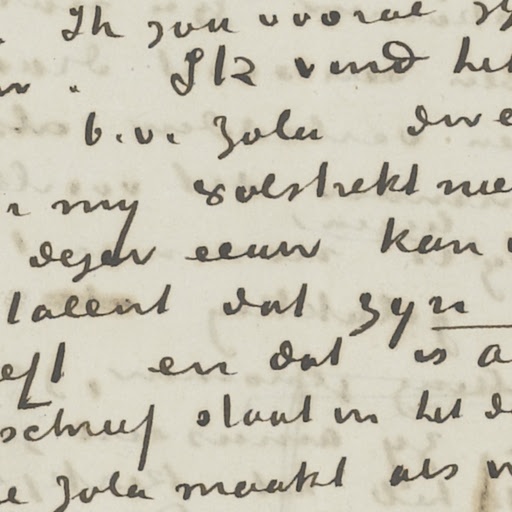 Ik zou vooral
Ik vind het
b.v. Zola
my volstrekt nie
dezer eeuw kan
talent dat zyn
eft en dat is a
schreef staat in het d
e Zola maakt als